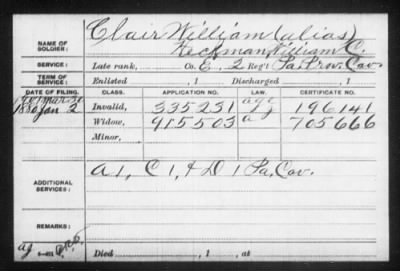 NAME OF SOLDIER: Clair William (alias)
Heckman William C.
SERVICE: Late rank, Co. E, 2 Reg't Pa. Prov. Cav.
TERM OF SERVICE: Enlisted , 1 Discharged , 1
DATE OF FILING. CLASS. APPLICATION NO. LAW. CERTIFICATE NO.
1880 Jan 2 Invalid, 335231 196141
Widow, 915503 705666
Minor,
ADDITIONAL SERVICES: A 1, C 1, & D 1 Pa. Cav.
REMARKS:
Died , 1 , at